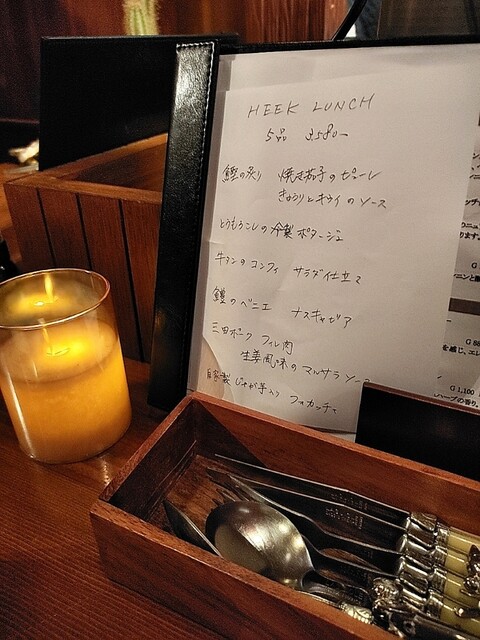 HEEK LUNCH
5品 3580ー
鰹の炙り 焼き茄子のピューレ
きゅうりとキウイのソース
とうもろこしの冷製ポタージュ
牛タンのコンフィ サラダ仕立て
鱧のベニエ ナスキャビア
三田ポーク フィレ肉
生姜風味のマルサラソース
自家製 じゃが芋入り フォカッチャ
G
G 88
を感じ、エレ
G 1,100
ハーブの香り。